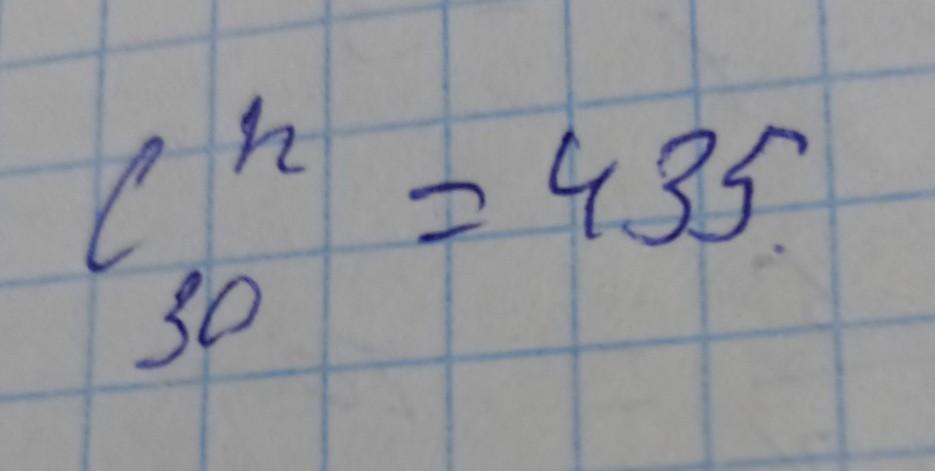 C₃₀ⁿ = 435.